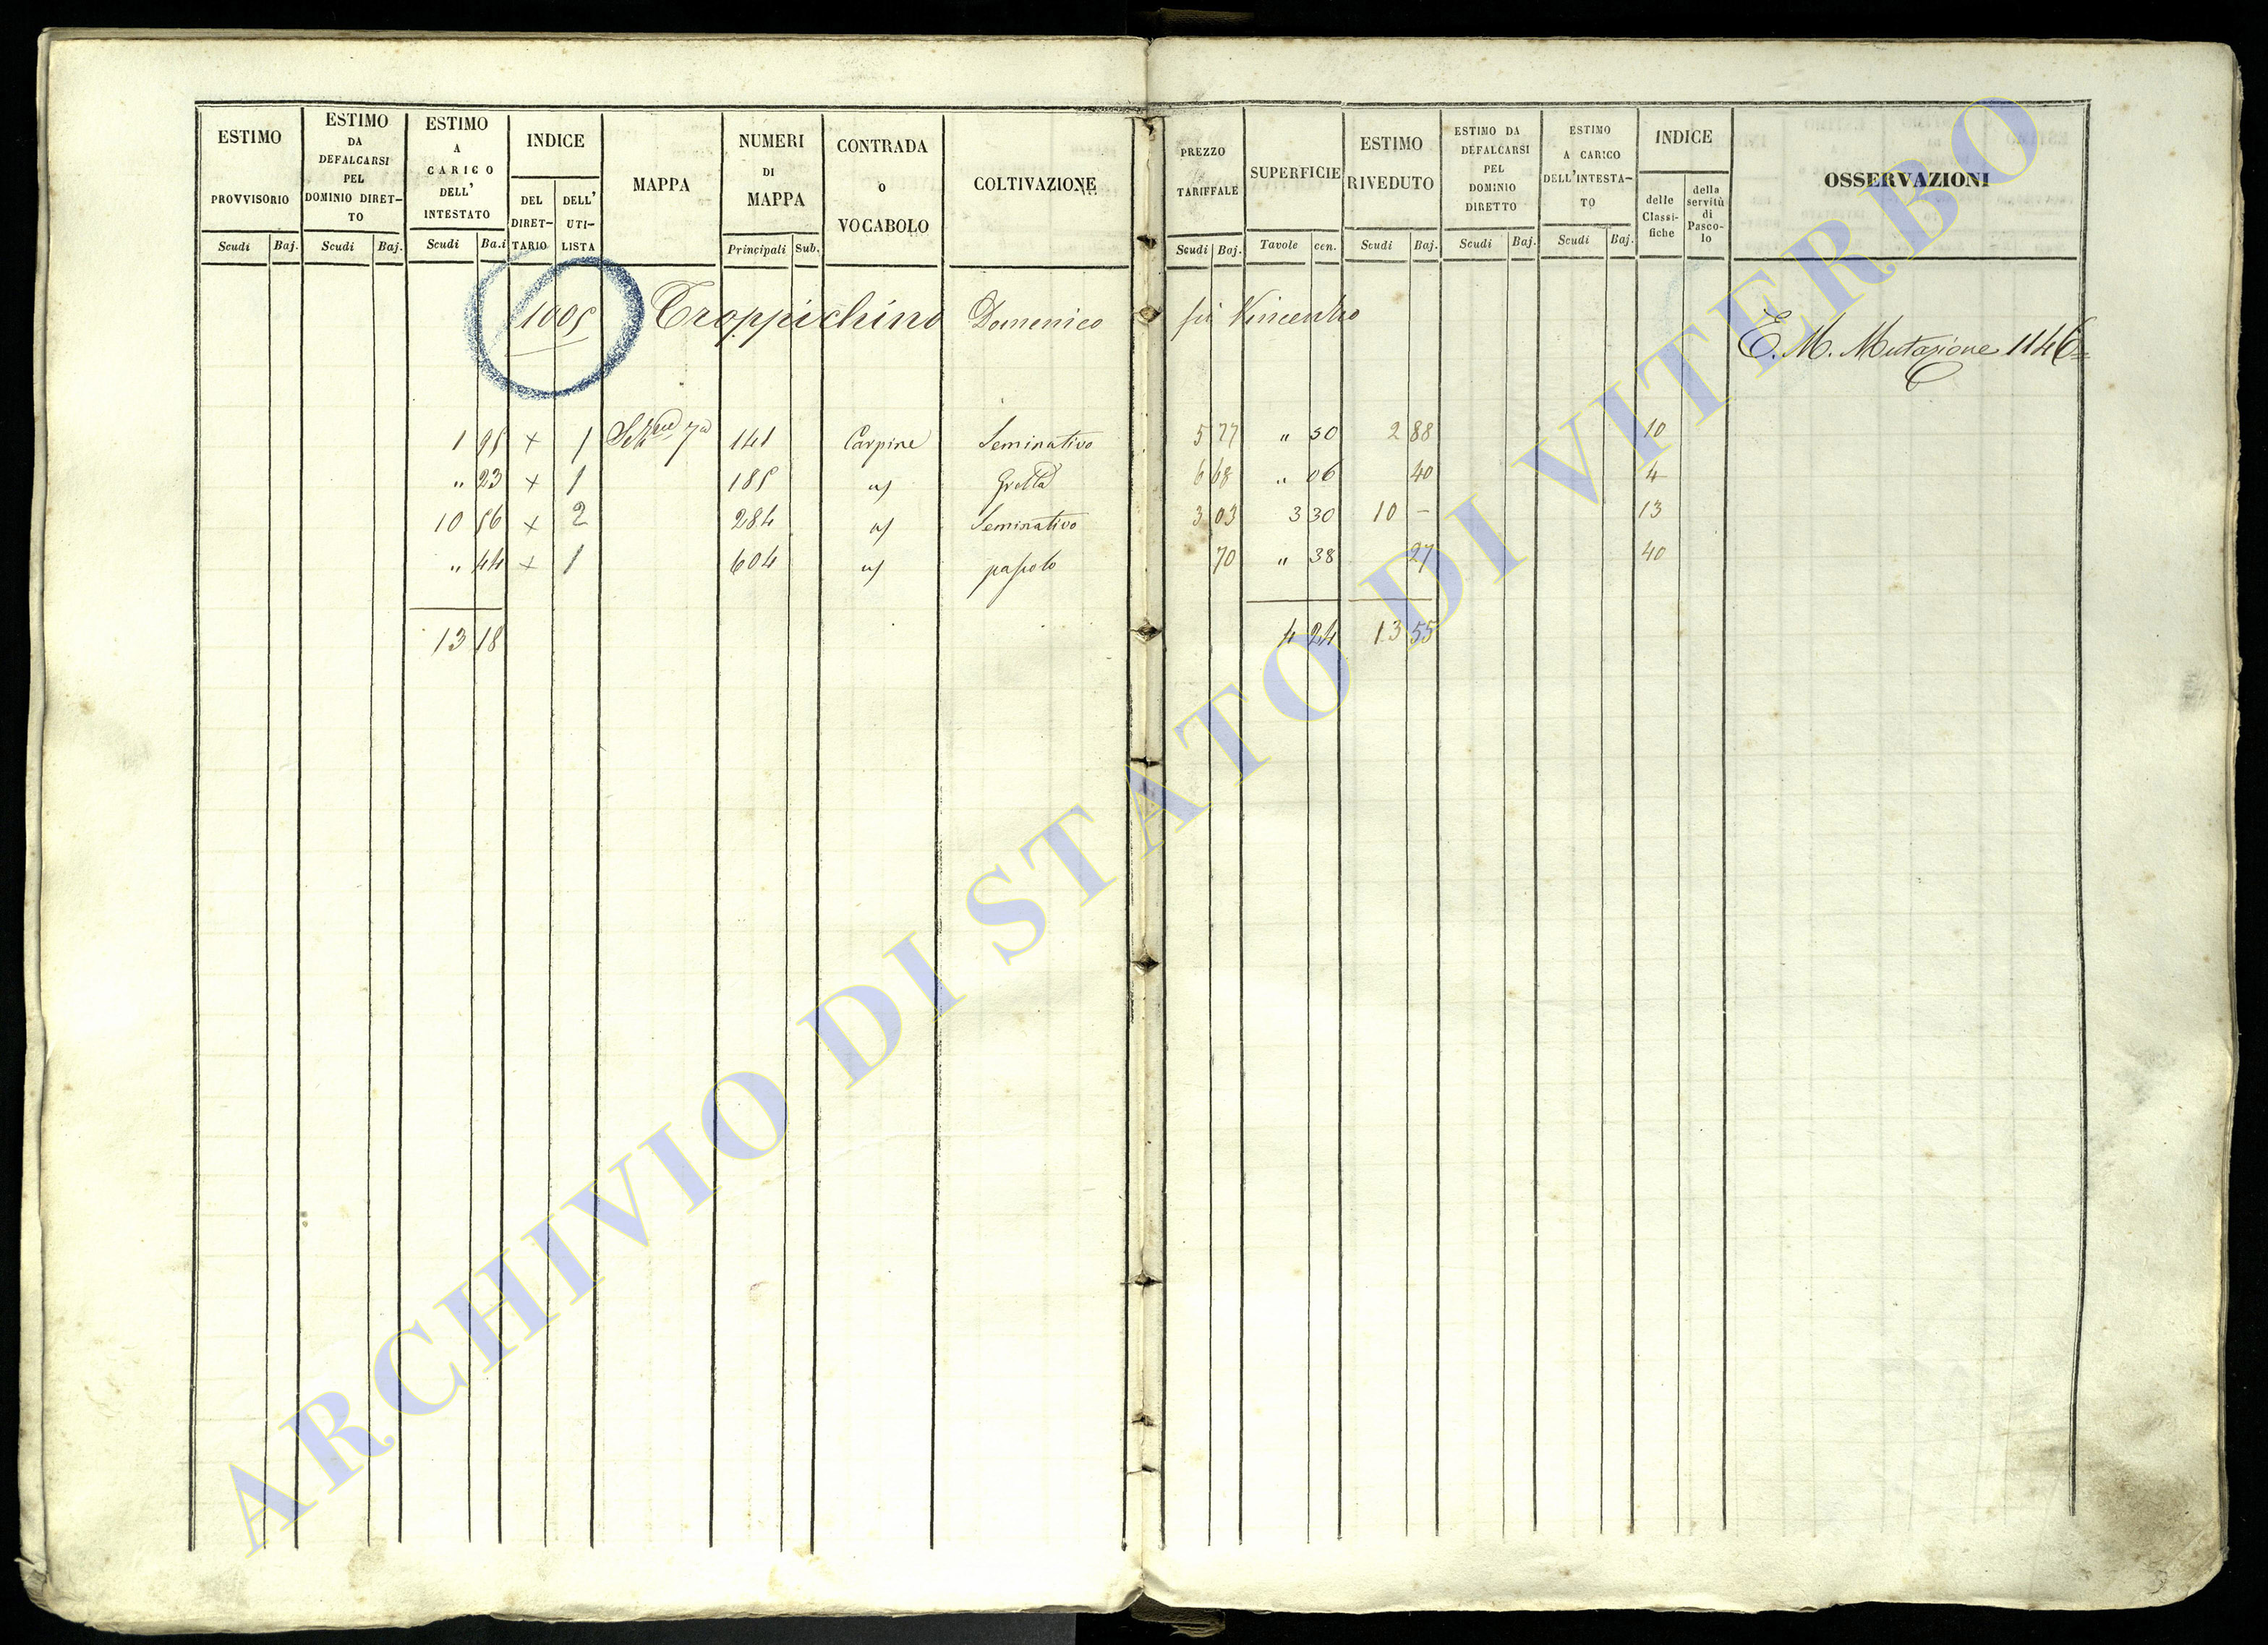 ESTIMO PROVVISORIO
Scudi Baj.
ESTIMO DA DEFALCARSI PEL DOMINIO DIRET-TO
Scudi Baj.
ESTIMO A CARICO DELL' INTESTATO
Scudi Ba.i
INDICE
DEL DIRET-TARIO
DELL' UTI-LISTA
MAPPA
NUMERI DI MAPPA
Principali Sub.
CONTRADA O VOCABOLO
COLTIVAZIONE
PREZZO TARIFFALE
Scudi Baj.
SUPERFICIE
Tavole cen.
ESTIMO RIVEDUTO
Scudi Baj.
ESTIMO DA DEFALCARSI PEL DOMINIO DIRETTO
Scudi Baj.
ESTIMO A CARICO DELL'INTESTA-TO
Scudi Baj.
INDICE
delle Classi-fiche
della servitù di Pasco-lo
OSSERVAZIONI
1005 Troppichino Domenico fu Vincenzo
E. M. Mutazione 1146
1 95 × 1 Sez 7a 141 Carpine Seminativo 5 77 " 50 2 88 10
" 23 × 1 185 Grotta 6 68 " 06 40 4
10 56 × 2 284 Seminativo 3 03 3 30 10 – 13
" 44 × 1 604 pascolo 70 " 38 27 40
13 18 4 24 13 55
ARCHIVIO DI STATO DI VITERBO